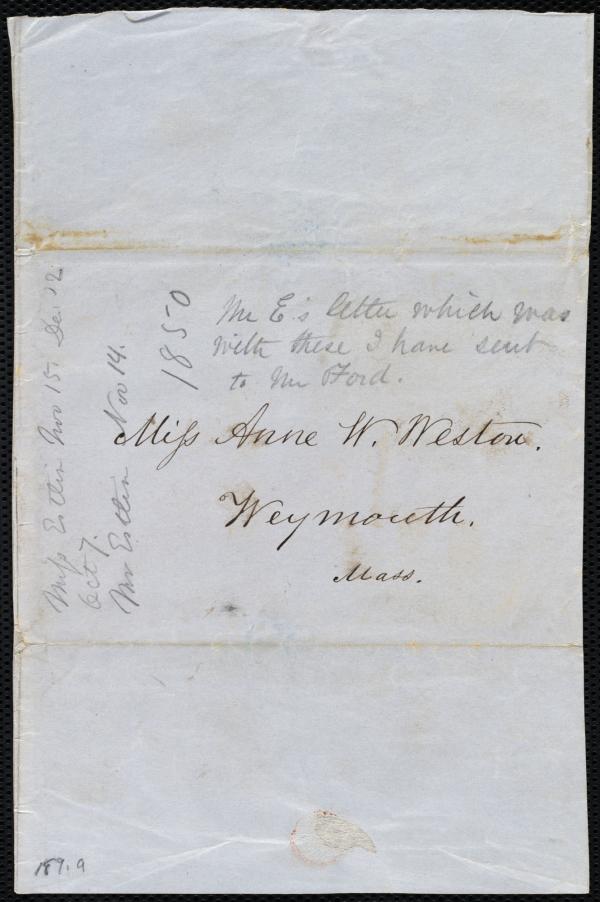 Mr E's letter which was
with these I have sent
to Mr Ford.
Miss Anne W. Weston.
Weymouth.
Mass.
1850
Miss Estlin Nov 15. Dec 12
Oct 7.
Mr Estlin Nov 14.
189.9